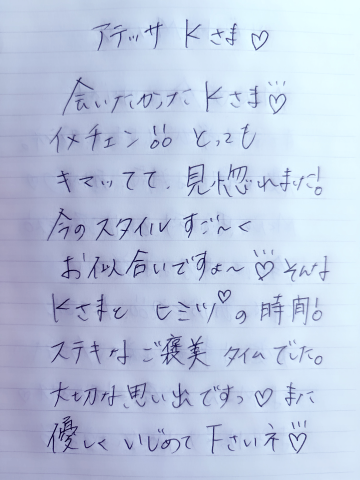 アテッサ Kさま♡
会いたかったKさま♡
イメチェン!! とっても
キマッてて、見惚れました!
今のスタイルすご〜く
お似合いですよ〜♡そんな
Kさまと ヒミツ♡の時間!
ステキなご褒美タイムでした。
大切な思い出ですっ♡また
優しくいじめて下さいネ♡